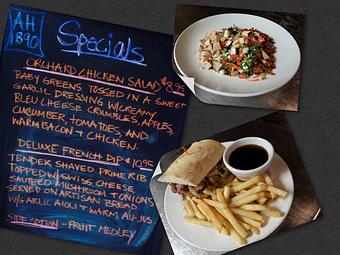 AH
890
Specials
ORCHARD CHICKEN SALAD $8.95
BABY GREENS TOSSED IN A SWEET
GARLIC DRESSING W/CREAMY
BLEU CHEESE CRUMBLES, APPLES,
CUCUMBER, TOMATOES, AND
WARM BACON + CHICKEN.
DELUXE FRENCH DIP $10.95
TENDER SHAVED PRIME RIB
TOPPED W/ SWISS CHEESE
SAUTEED MUSHROOM + ONIONS
SERVED ON ARTISAN BREAD
W/ GARLIC AIOLI + WARM AU-JUS
SIDE OPTION - FRUIT MEDLEY